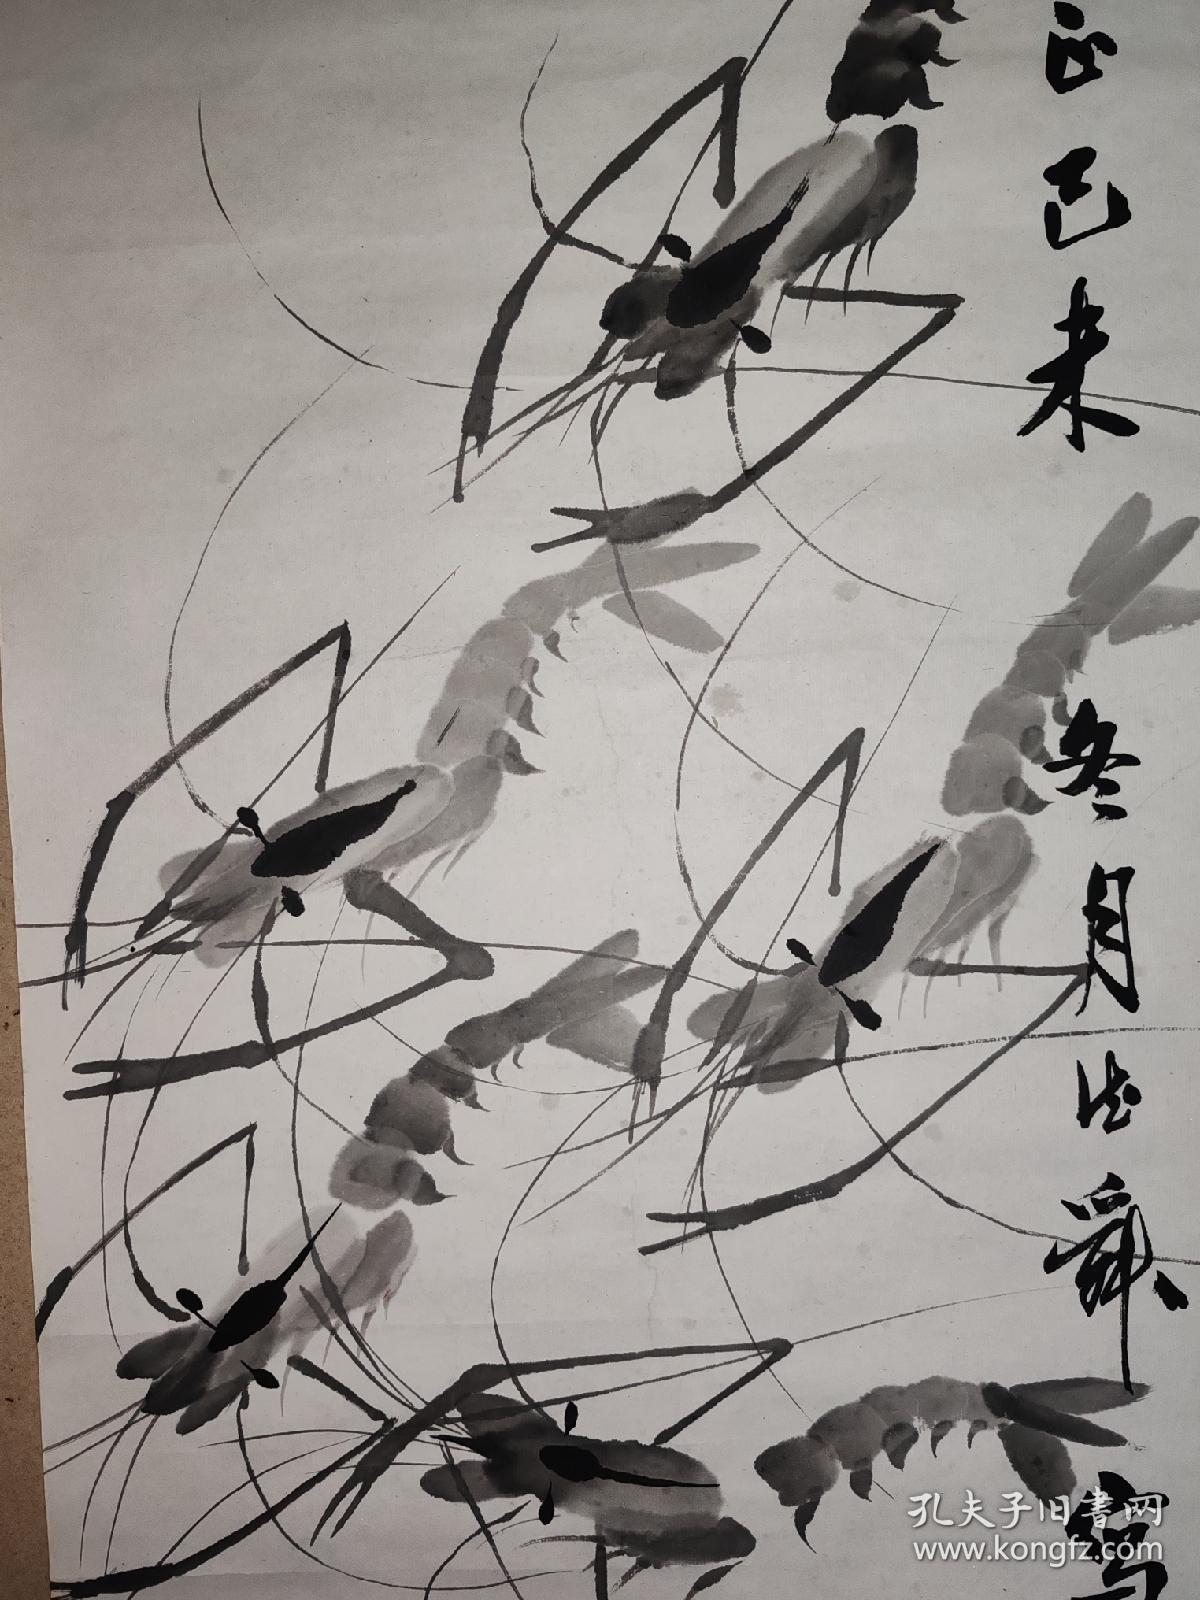 正己未冬月法舜写
孔夫子旧书网
www.kongfz.com